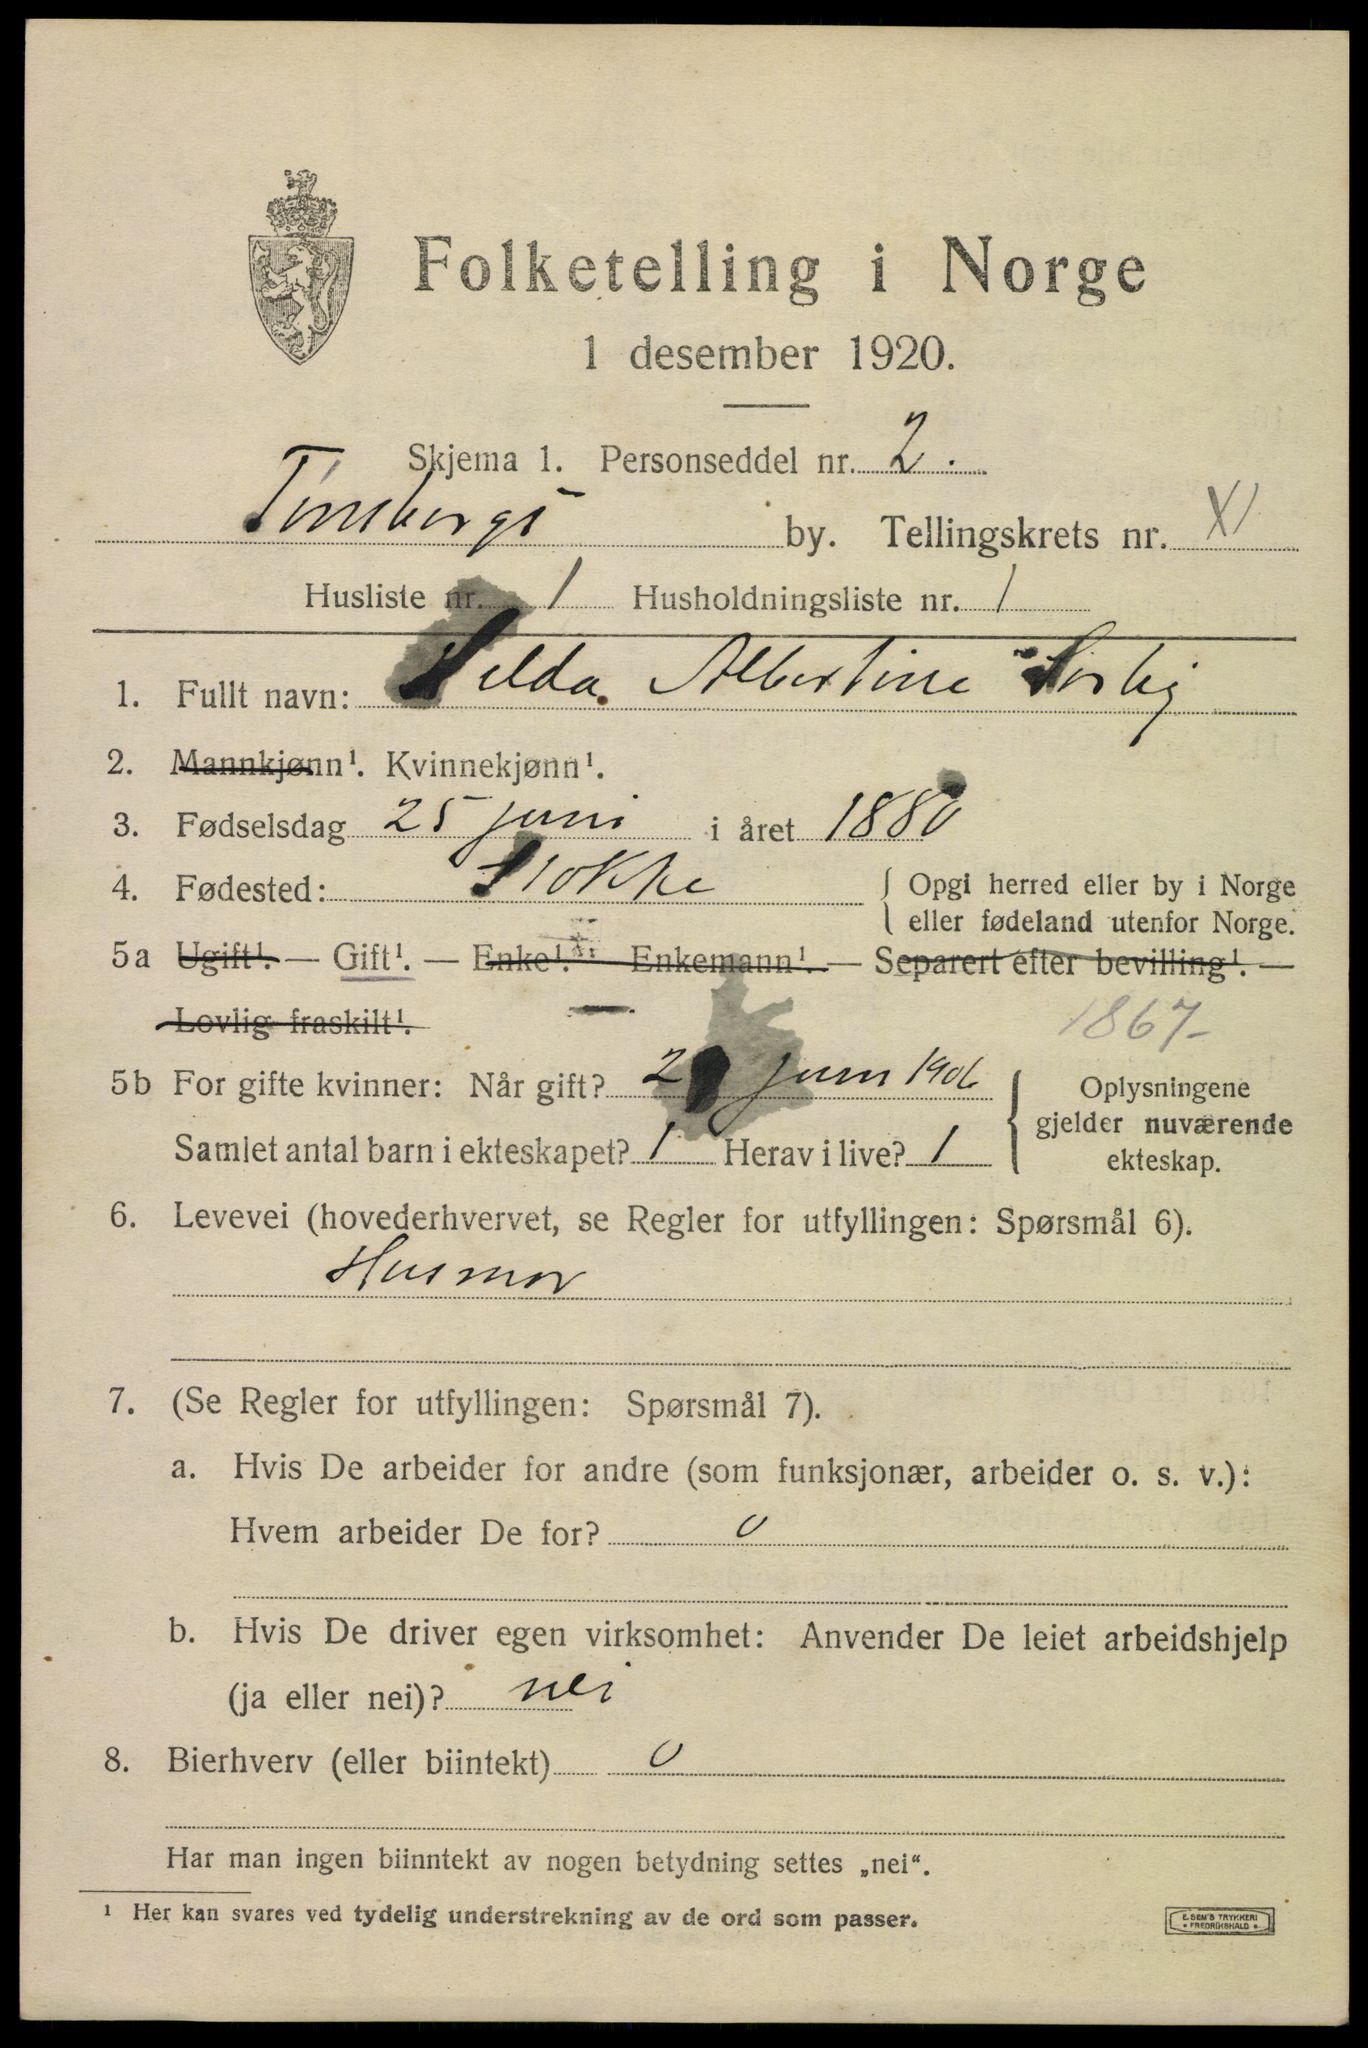 Folketelling i Norge
1 desember 1920.
Skjema 1. Personseddel nr. 2.
Tønsbergs by. Tellingskrets nr. XI
Husliste nr. 1 Husholdningsliste nr. 1
1. Fullt navn: Albertine
2. Mannkjønn¹. Kvinnekjønn¹.
3. Fødselsdag 25 juni i året 1880
4. Fødested: Stokke { Opgi herred eller by i Norge
eller fødeland utenfor Norge.
5a Ugift¹. — Gift¹. — Enke¹. — Enkemann¹. — Separert efter bevilling¹. —
Lovlig fraskilt¹.
1867-
5b For gifte kvinner: Når gift? juni 1906 { Oplysningene
gjelder nuværende
ekteskap.
Samlet antal barn i ekteskapet? 1 Herav i live? 1
6. Levevei (hovederhvervet, se Regler for utfyllingen: Spørsmål 6).
Husmor
7. (Se Regler for utfyllingen: Spørsmål 7).
a. Hvis De arbeider for andre (som funksjonær, arbeider o. s. v.):
Hvem arbeider De for? 0
b. Hvis De driver egen virksomhet: Anvender De leiet arbeidshjelp
(ja eller nei)? nei
8. Bierhverv (eller biintekt) 0
Har man ingen biinntekt av nogen betydning settes „nei“.
¹ Her kan svares ved tydelig understrekning av de ord som passer.
E. SEM'S TRYKKERI
• FREDRIKSHALD •